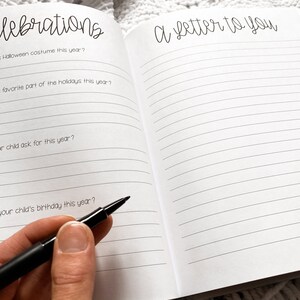 elebrations
Halloween costume this year?
favorite part of the holidays this year?
ur child ask for this year?
your child's birthday this year?
A letter to you